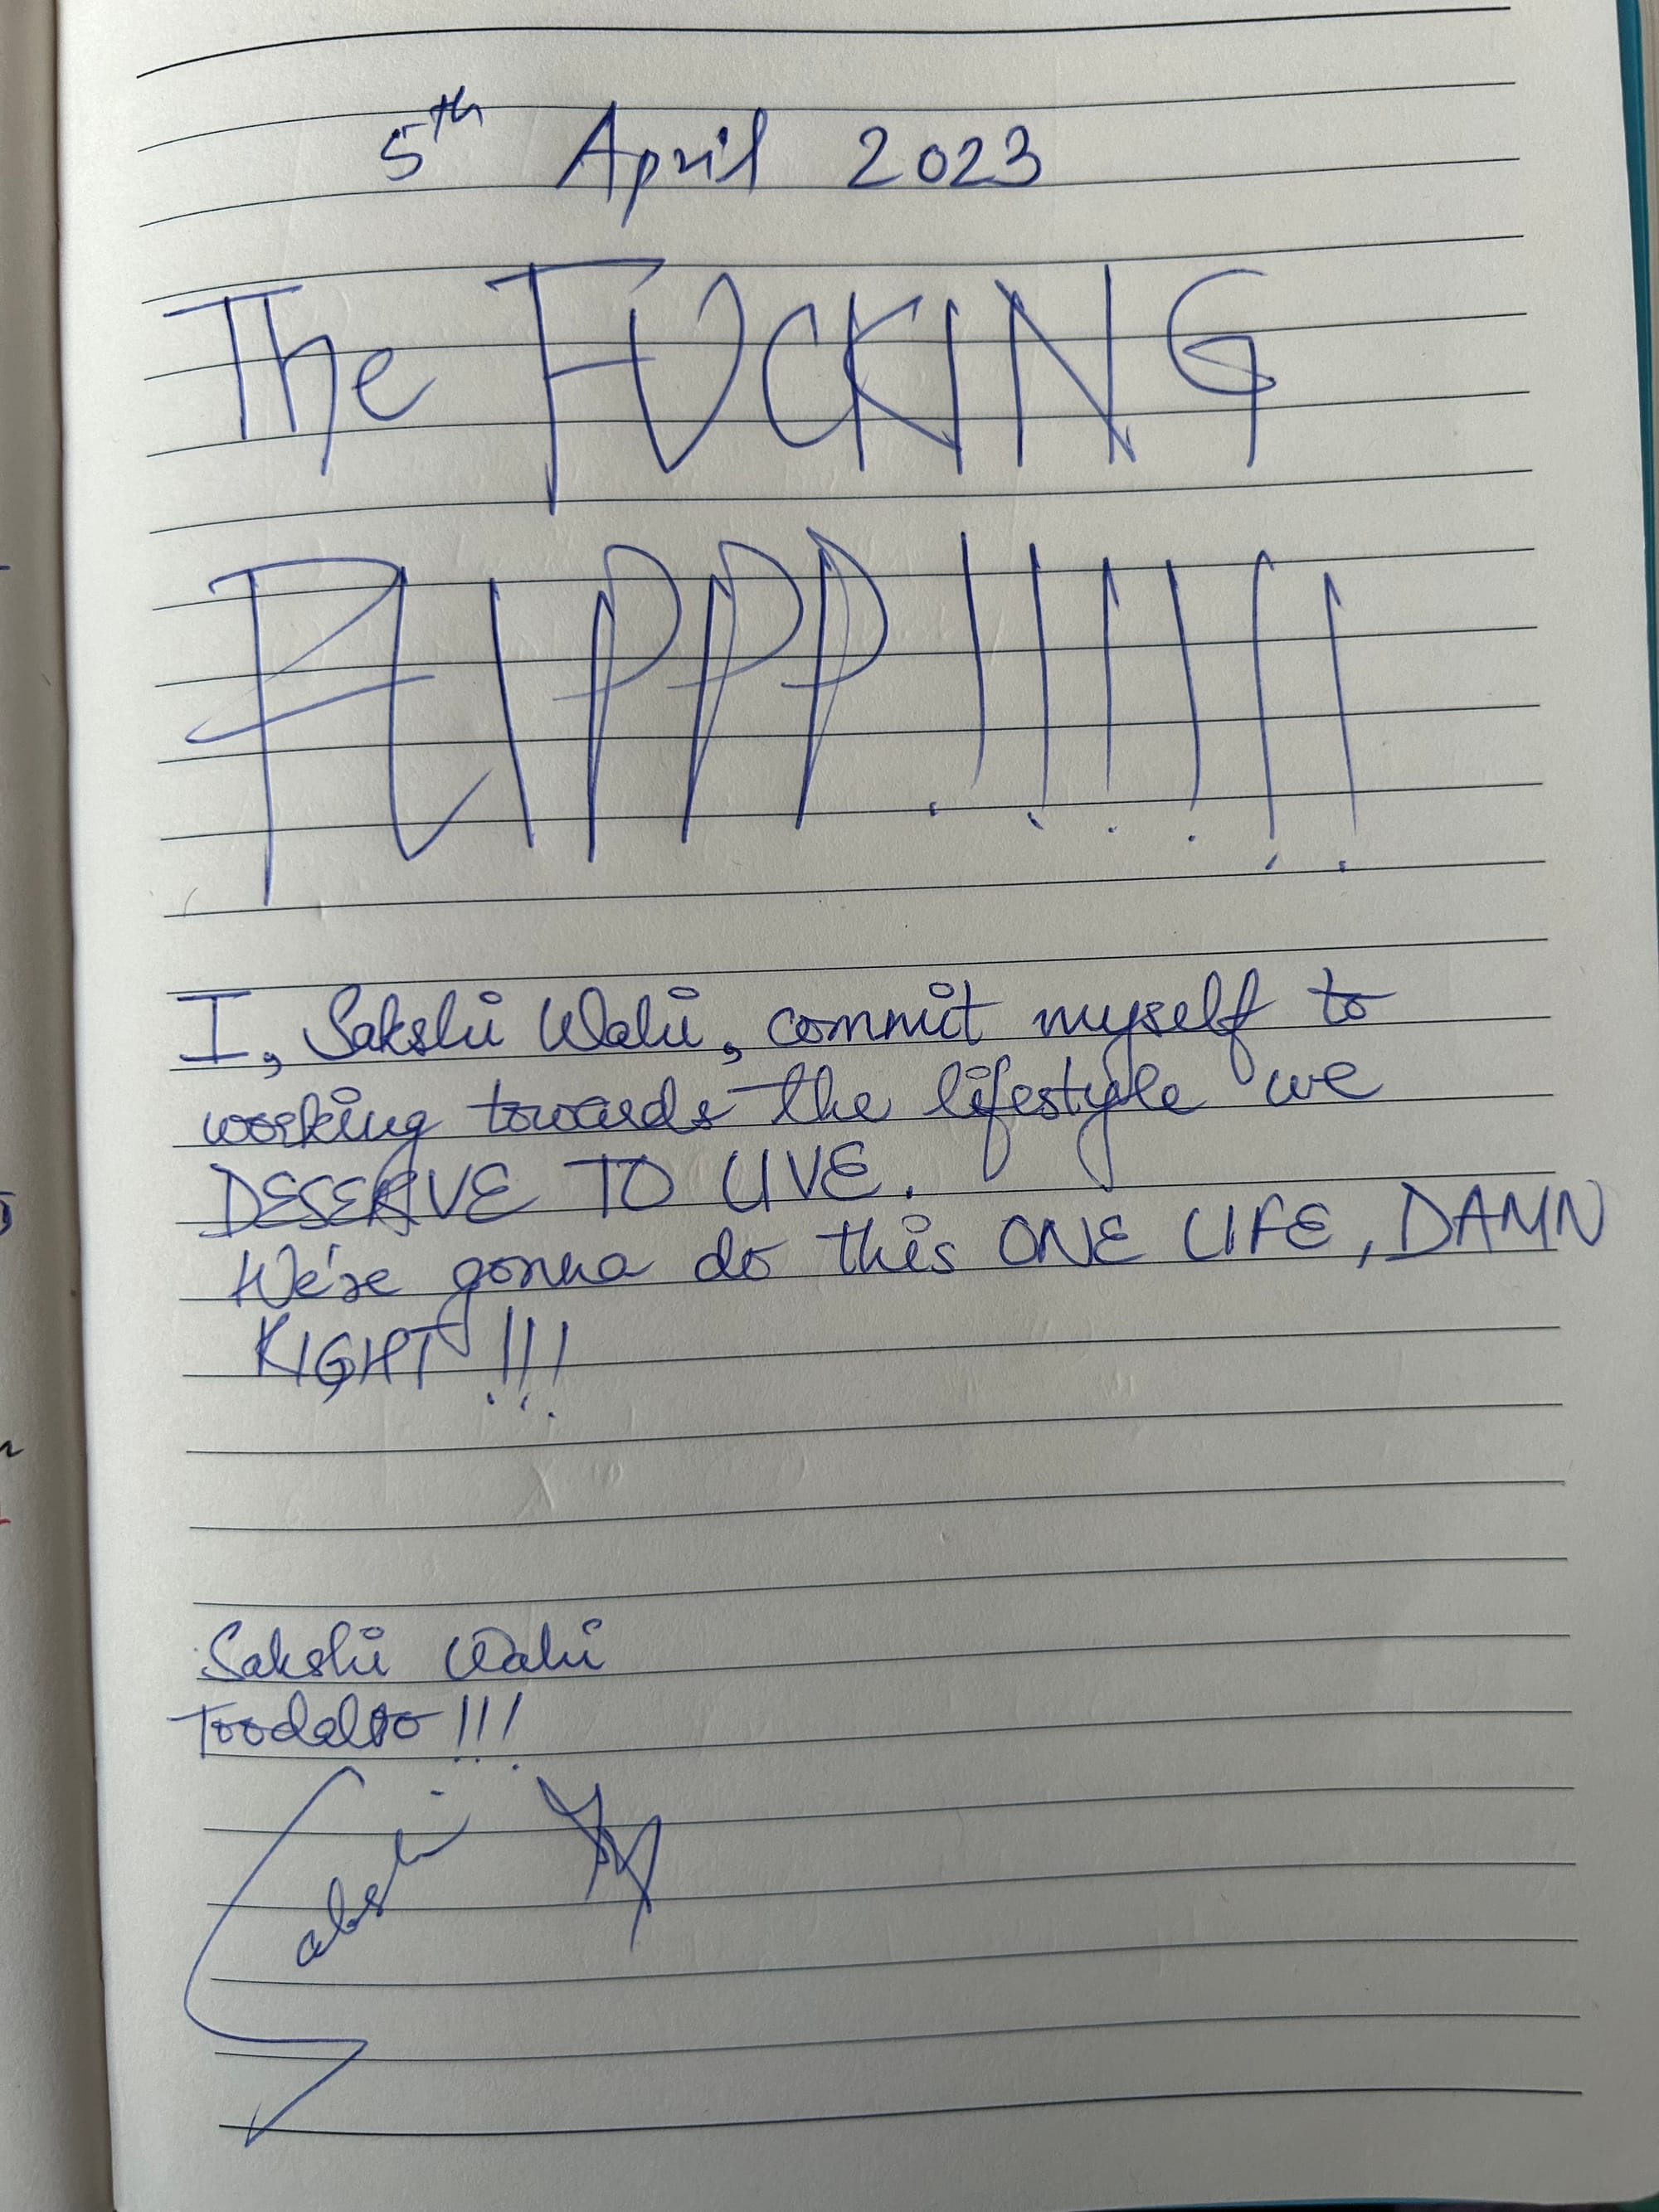 5th April 2023
The FUCKING
FLIPPP!!!!!!
I, Sakshi Wahi, commit myself to
working towards the lifestyle we
DESERVE TO LIVE.
We're gonna do this ONE LIFE, DAMN
RIGHT!!!
Sakshi Wahi
Toodaloo!!!
Sakshi